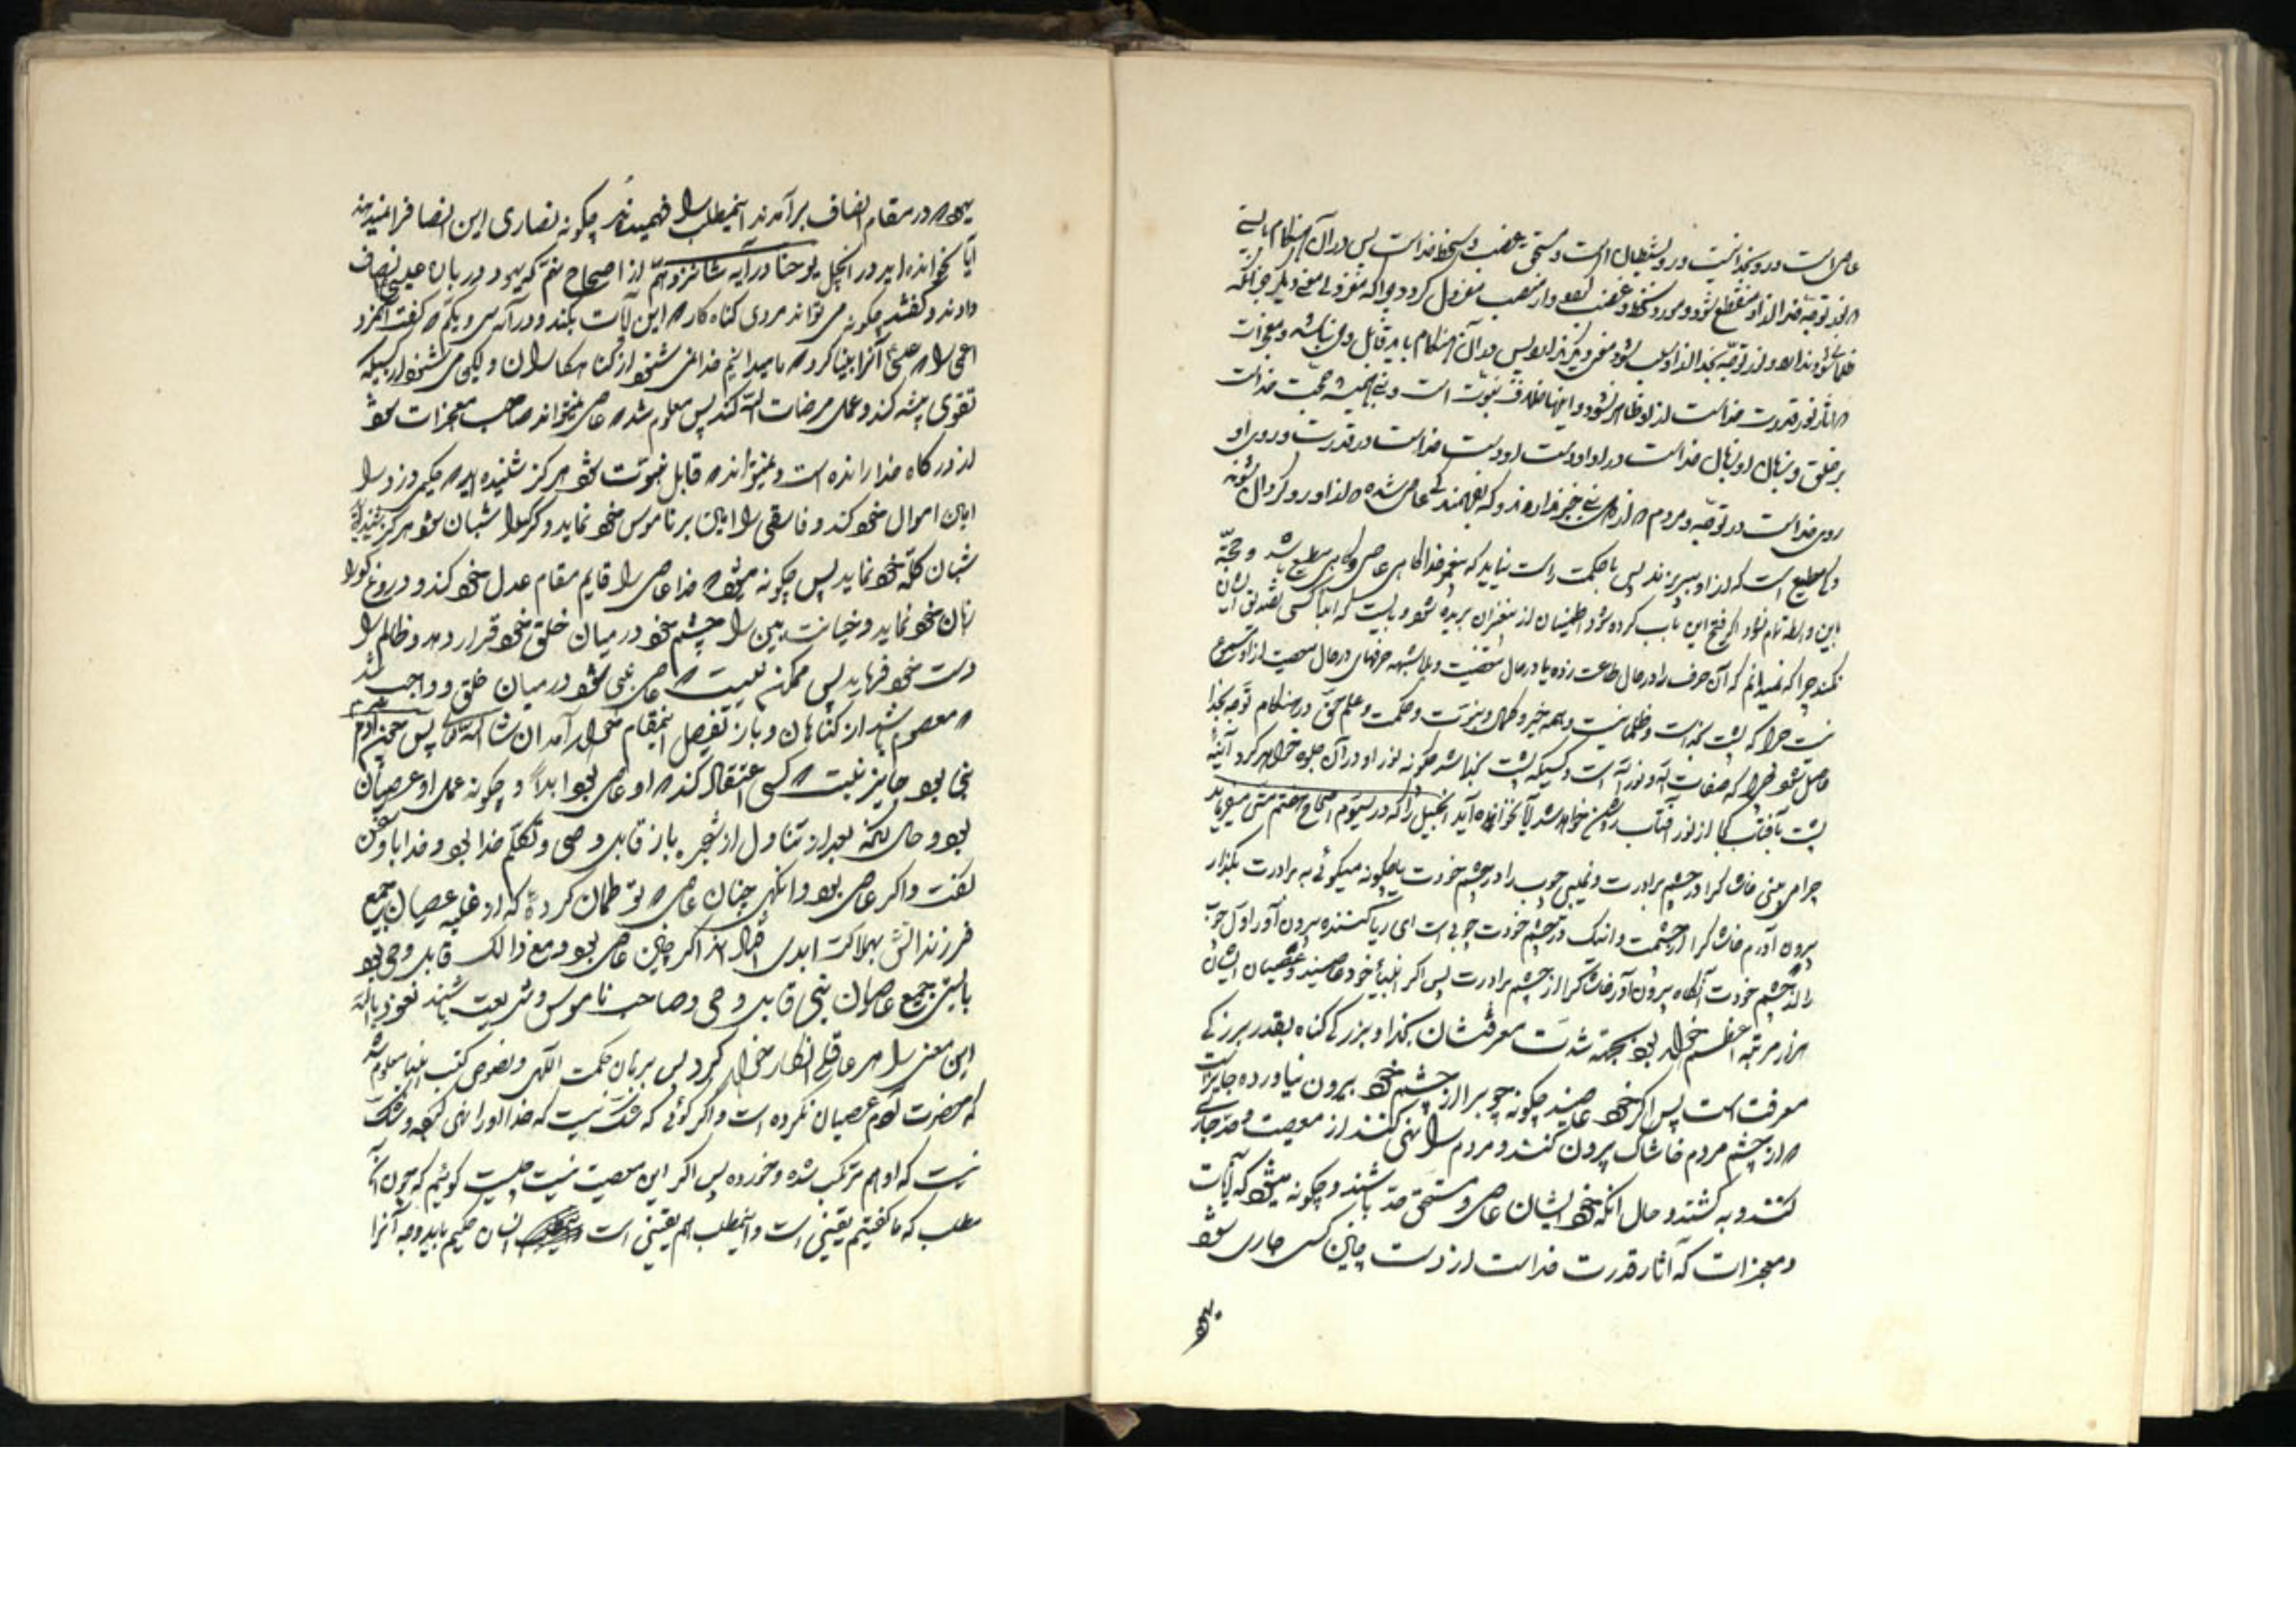 عاصی است در و بخدا نیست و رو بشیطان است و مستحق غضب و سخط خداست پس در آن هنگام بایستی
که نور توجه خدا از او منقطع شود و مورد سخط و غضب شود و از منصب معزول گردد چرا که معزولی معنی دیگر جز آنکه
شود ندارد و نور توجه بخدا از او سلب شود معنی دیگر ندارد پس در آن هنگام باید قابل وحی نباشد و معجزات
که آثار نور قدرت خداست از او ظاهر نشود و اینها خلاف نبوت است و نبی همیشه حجت خداست
بر خلق و زبان او زبان خداست در اوامر و دست او دست خداست در قدرت و روی او
روی خداست در توجه و مردم که از دل نبی خبر ندارند که بفهمند کی عاصی شده که از او رو گردان شوند
و کی مطیع است که از او بپذیرند پس با حکمت راست نیاید که پیغمبر خدا گاهی عاصی و گاهی مطیع باشد و حجة
باین واسطه تمام نشود اگر فتح این باب کرده شود اطمینان از پیغمبران بریده شود و بایست که ابدا کسی تصدیق ایشان
نکند چرا که نمیدانم که آن حرف را در حال طاعت زده یا در حال معصیت و بلا شبهه حرفهای در حال معصیت از او مسموع
نیست چرا که پشت بخداست و ظلمانیست و همه خیر و کمال و بینایت و حکمت و علم حق در هنگام توجه بخدا
حاصل شود چرا که صفات الله و نور الله است و کسیکه پشت بخدا باشد چگونه نور او در آن جلوه خواهد کرد آئینه
پشت بآفتاب کجا از نور آفتاب روشن خواهد شد آیا نخوانده اید انجیل را که در سیوم اصحاح هفتم متی میفرماید
چرا می بینی خاشاک را در چشم برادرت و نمی بینی چوب را در چشم خودت یا چگونه میگوئی به برادرت بگذار
بیرون آورم خاشاک را از چشمت و اینک در چشم خودت چوبی است ای ریا کننده بیرون آور اول چوب
را از چشم خودت آنگاه بیرون آور خاشاک را از چشم برادرت پس اگر انبیاء خود عاصیند و عصیان ایشان
هزار مرتبه اعظم خواهد بود بجهة شدت معرفتشان بخدا و بزرگی گناه بقدر بزرگی
معرفت است پس اگر خود عاصیند چگونه چوب را از چشم خود بیرون نیاورده جایز است
که از چشم مردم خاشاک بیرون کنند و مردم را نهی کنند از معصیت و حد جاری
کنند و بکشند و حال آنکه خود ایشان عاصی و مستحق حد باشند و چگونه میشود که آیات
و معجزات که آثار قدرت خداست از دست چنین کسی جاری شود
یهود
یهود در مقام انصاف برآمدند اینمطلب را فهمیدند چگونه نصاری این انصاف را نمیدهند
آیا نخوانده اید در انجیل یوحنا در آیه شانزدهم از اصحاح نهم که یهود در باره عیسی انصاف
دادند و گفتند چگونه می تواند مردی گناه کار که این آیات بکند و در آیه سی و یکم که گفت آنمرد
اعمی را که عیسی آنرا بینا کرد که ما میدانیم خدا نمی شنود از گناهکاران ولیکن می شنود از کسیکه
تقوی پیشه کند و عمل مرضات الله کند پس معلوم شد که عاصی نمیتواند صاحب معجزات شود
از درگاه خدا رانده است و نمیتواند که قابل نبوت شود هرگز شنیده اید که حکیمی دزد را
امین اموال خود کند و فاسقی را امین بر ناموس خود نماید و گرگ را شبان خود هرگز شنیده
شبان گله خود نماید پس چگونه میشود که خدا عاصی را قایم مقام عدل خود کند و دروغ گو را
زبان خود نماید و خیانت بین را چشم خود در میان خلق خود قرار دهد و ظالم را
دست خود فرماید پس ممکن نیست که عاصی نبی شود در میان خلق و واجب شد
که معصوم باشد از گناهان و باز تفصیل اینمقام خواهد آمد ان شاء الله تعالی پس چون آدم
نبی بود جایز نیست که کسی اعتقاد کند که او عاصی بود ابداً و چگونه عمل او عصیان
بود و حال آنکه بعد از تناول از شجره باز قابل وحی و تکلم خدا بود و خدا با او سخن
گفت و اگر عاصی بود و آنگهی چنان عاصی که تو گمان کردهٔ که از غلبه عصیان جمیع
فرزندانش بهلاکت ابدی افتادند اگر چنین عاصی بود و مع ذالک قابل وحی بود
بایستی جمیع عاصیان نبی قابل وحی و صاحب ناموس و شریعت باشند نعوذ بالله
این معنی را هر عاقلی انکار خواهد کرد پس ببرهان حکمت الهی و نصوص کتب انبیا معلوم شد
که حضرت آدم عصیان نکرده است و اگر گوئی که شک نیست که خدا او را نهی کرده و شک
نیست که او هم مرتکب شده و خورده پس اگر این معصیت نیست چیست گوئیم که چون آن
مطلب که ما گفتیم یقینی است و اینمطلب هم یقینی است انسان حکیم باید وجه آنرا